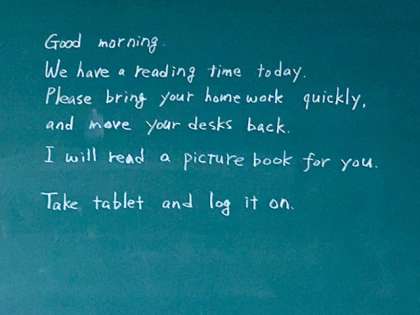 Good morning.
We have a reading time today.
Please bring your homework quickly,
and move your desks back.
I will read a picture book for you.
Take tablet and log it on.